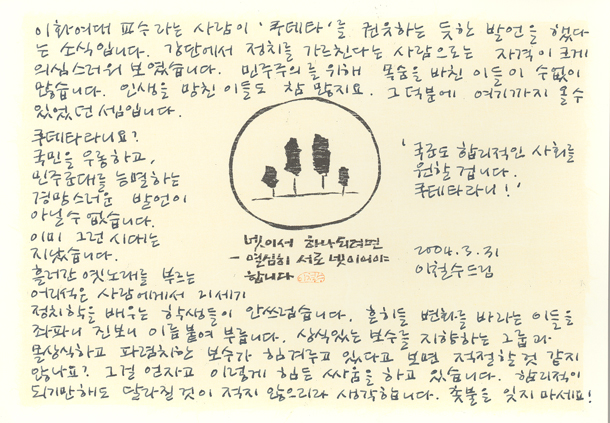 이화여대 교수라는 사람이 '쿠데타'를 권유하는 듯한 발언을 했다
는 소식입니다. 강단에서 정치를 가르친다는 사람으로는 자격이 크게
의심스러워 보였습니다. 민주주의를 위해 목숨을 바친 이들이 수없이
많습니다. 인생을 망친 이들도 참 많지요. 그 덕분에 여기까지 올 수
있었던 셈입니다.
쿠데타라니요?
국민을 우롱하고,
민주군대를 능멸하는
경망스러운 발언이
아닐 수 없습니다.
이미 그런 시대는
지났습니다.
흘러간 옛노래를 부르는
어리석은 사람에게서 21세기
정치학을 배우는 학생들이 안쓰럽습니다. 흔히들 변화를 바라는 이들을
좌파니 진보니 이름붙여 부릅니다. 상식있는 보수를 지향하는 그룹과
몰상식하고 파렴치한 보수가 힘겨루고 있다고 보면 적절할 것 같지
않나요? 그걸 연자고 이렇게 힘든 싸움을 하고 있습니다. 합리적이
되기만해도 달라질 것이 적지 않으리라 생각합니다. 촛불을 잊지 마세요!
넷이서 하나되려면
- 열심히 서로 넷이어야
합니다
'국군도 합리적인 사회를
원할 겁니다.
쿠데타라니!'
2004.3.31
이철수드림